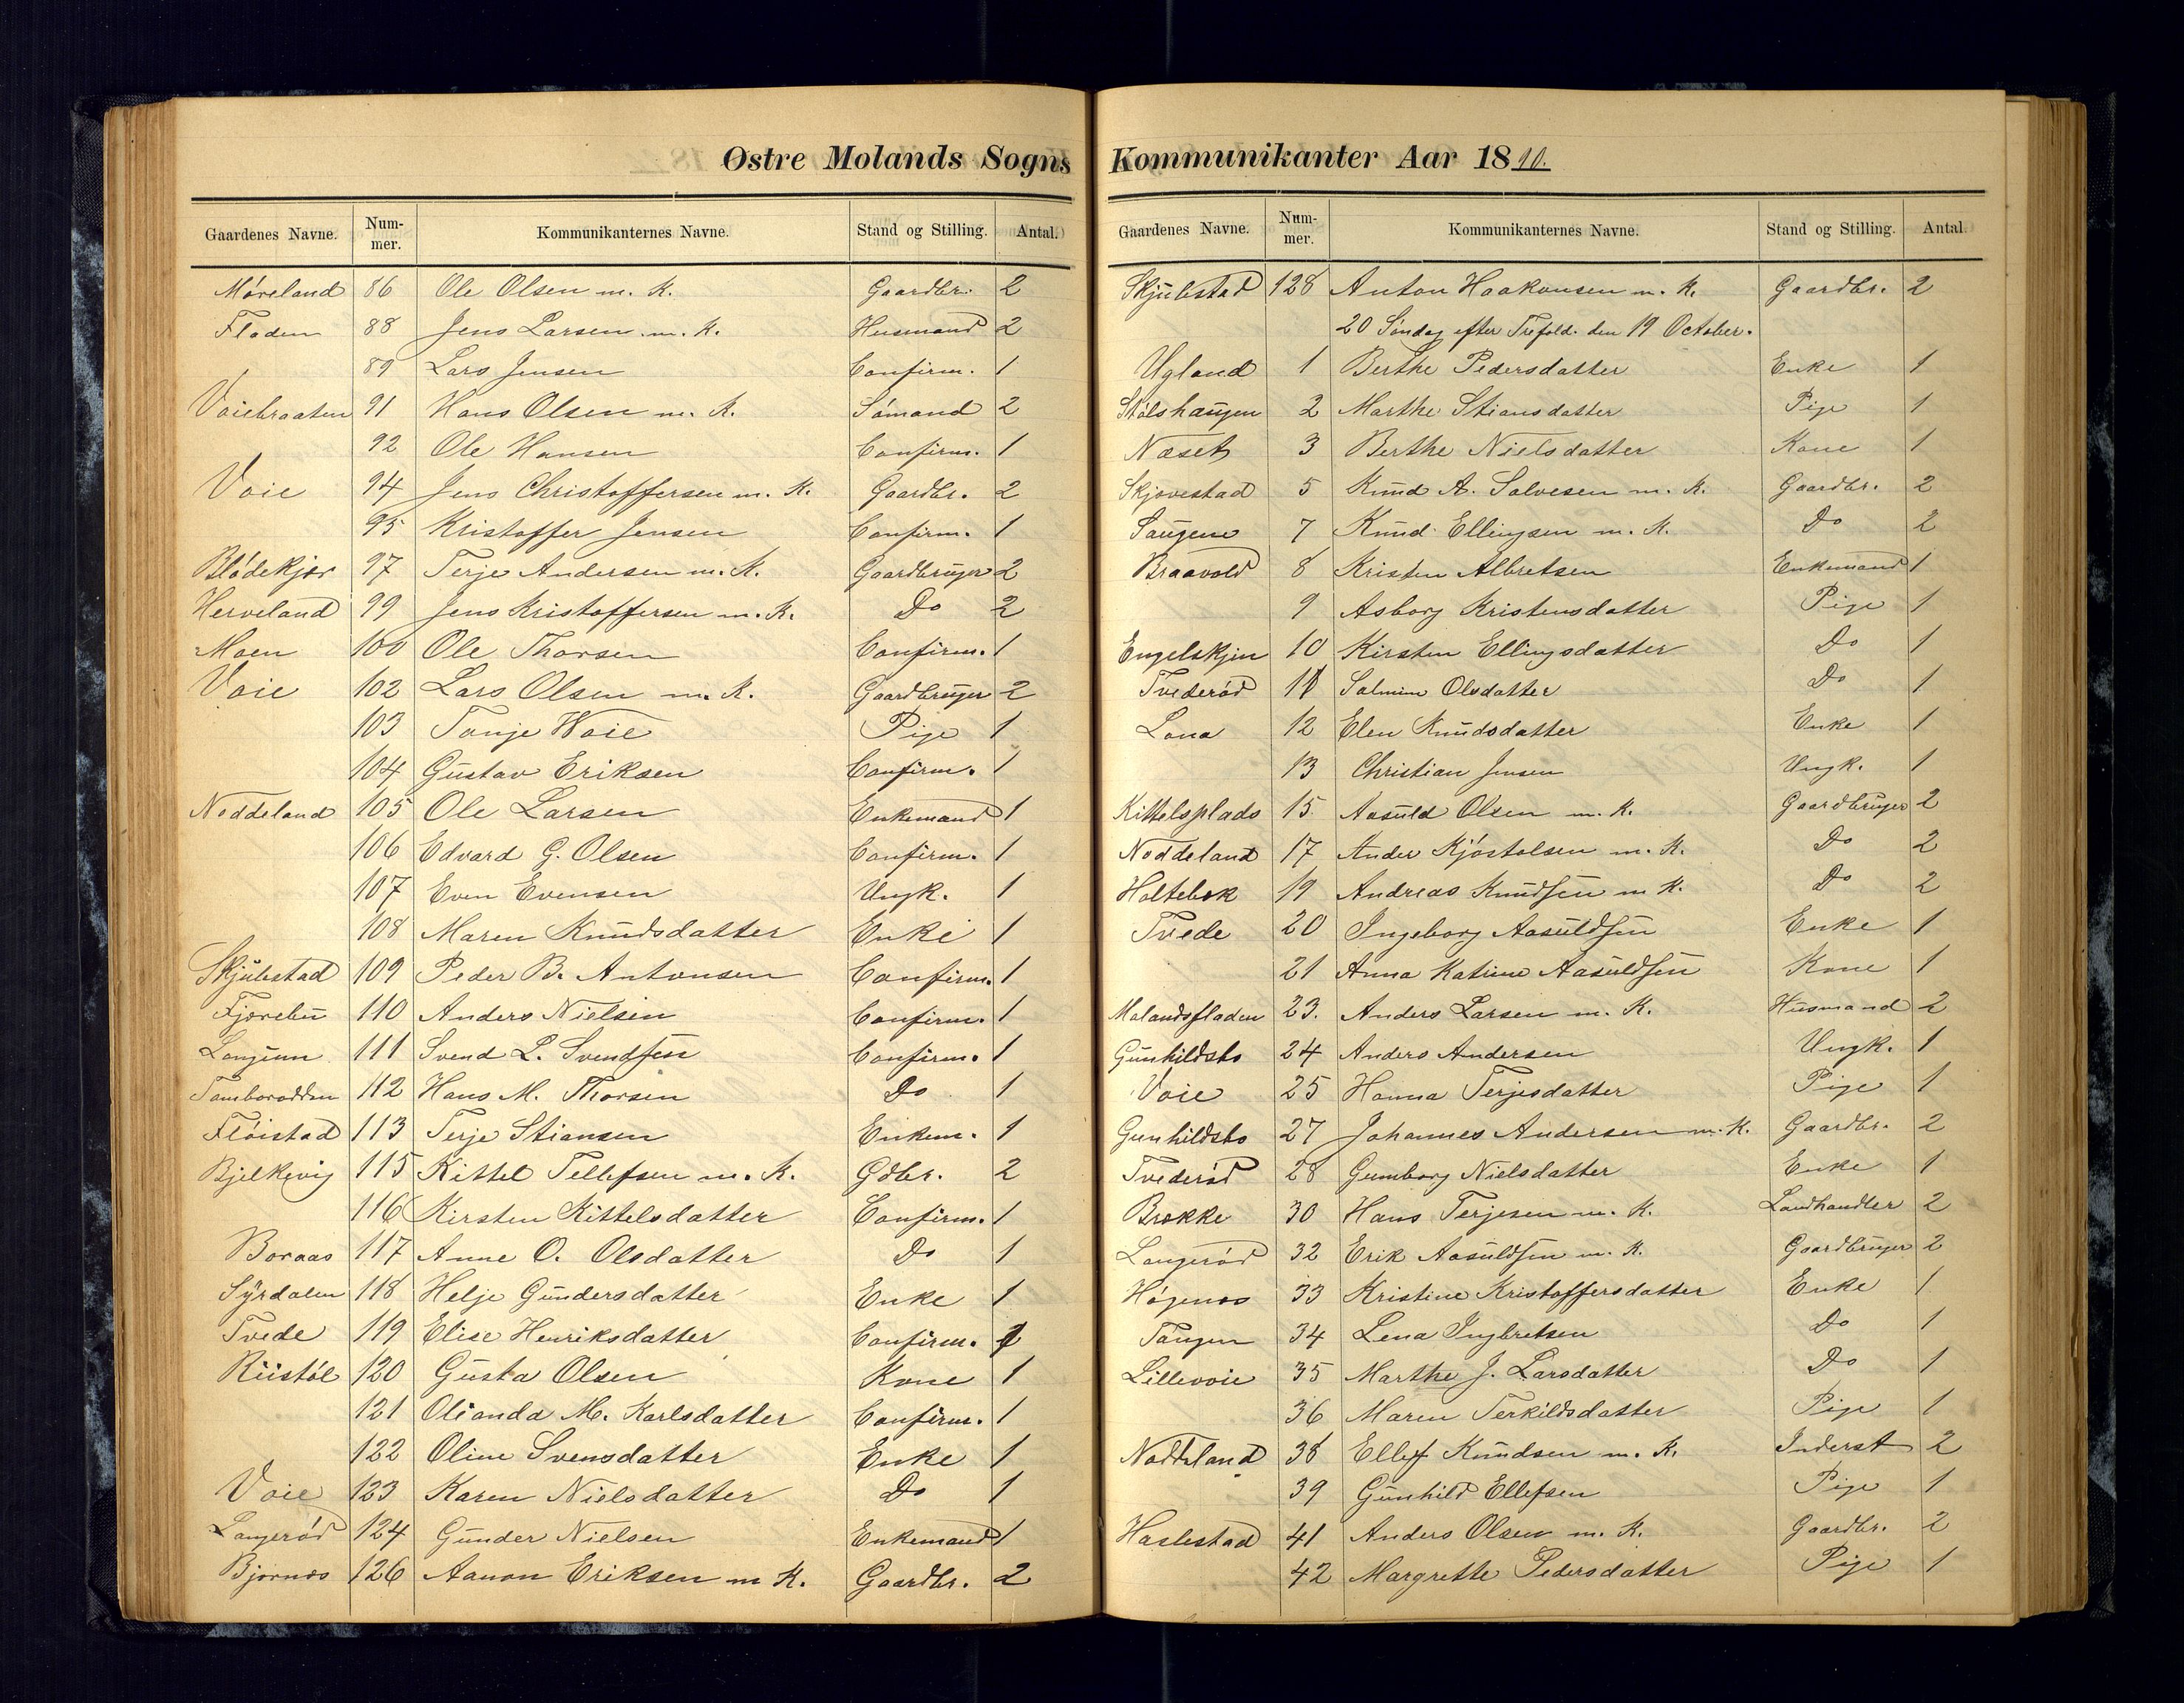 Østre Molands Sogns
Gaardenes Navne. Nummer. Kommunikanternes Navne. Stand og Stilling. Antal.
Móreland 86 Ole Olsen m. K. Gaardbr. 2
Floden 88 Jens Larsen m. K. Husmand 2
89 Lars Jensen Confirm. 1
Voiebraaten 91 Hans Olsen m. K. Sómand 2
92 Ole Hansen Confirm. 1
Voie 94 Jens Christoffersen m. K. Gaardbr. 2
95 Kristoffer Jensen Confirm. 1
Blódekjær 97 Terje Andersen m. K. Gaardbruger 2
Herveland 99 Jens Kristoffersen m. K. Do 2
Moen 100 Ole Thorsen Confirm. 1
Voie 102 Lars Olsen m. K. Gaardbruger 2
103 Tonje Woie Pige 1
104 Gustav Eriksen Confirm. 1
Noddeland 105 Ole Larsen Enkemand 1
106 Edvard G. Olsen Confirm. 1
107 Even Evensen Ungk. 1
108 Maren Knudsdatter Enke 1
Skjulestad 109 Peder B. Antonsen Confirm. 1
Fjærebu 110 Anders Nielsen Confirm. 1
111 Svend L. Svendsen Confirm. 1
Tamborodden 112 Hans M. Thorsen Do 1
Flóistad 113 Terje Stiansen Enkem. 1
Bjelkevig 115 Kittel Tellefsen m. K. Gdbr. 2
116 Kirsten Kittelsdatter Confirm. 1
Boraas 117 Anne O. Olsdatter Do 1
Syrdalen 118 Helje Gundersdatter Enke 1
Tvede 119 Elise Henriksdatter Confirm. 1
Riistól 120 Gusta Olsen Kone 1
121 Olianda M. Karlsdatter Confirm. 1
122 Oline Svensdatter Enke 1
Voie 123 Karen Nielsdatter Do 1
Langeród 124 Gunder Nielsen Enkemand 1
Bjornes 126 Aanon Eriksen m K. Gaardbr. 2
Kommunikanter Aar 1890.
Gaardenes Navne. Nummer. Kommunikanternes Navne. Stand og Stilling. Antal.
Skjulestad 128 Anton Haakonsen m. K. Gaardbr. 2
20 Sóndag efter Trefold. den 19 October.
Ugland 1 Berthe Pedersdatter Enke 1
Stólshaugen 2 Marthe Stiansdatter Pige 1
Næset 3 Berthe Nielsdatter Kone 1
Skjovestad 5 Knud A. Salvesen m. K. Gaardbr. 2
Saugene 7 Knud Ellingsen m. K. Do 2
Braavold 8 Kristen Albretsen Enkemand 1
9 Asborg Kristensdatter Pige 1
Engelskjen 10 Kirsten Ellingsdatter Do 1
Tvederód 11 Salmine Olsdatter Do 1
Lona 12 Elen Knudsdatter Enke 1
13 Christian Jensen Ungk. 1
Kittelsplads 15 Aasuld Olsen m. K. Gaardbruger 2
Noddeland 17 Ander Kjóstolsen m. K. Do 2
Holtebek 19 Andreas Knudsen m K. Do 2
Tvede 20 Ingeborg Aasuldsen Enke 1
21 Anna Katrine Aasuldsen Kone 1
Molandsfladen 23. Anders Larsen m. K. Husmand 2
Gunhildsbo 24 Anders Andersen Ungk. 1
Voie 25 Hanna Terjesdatter Pige 1
Gunhildsbo 27 Johannes Andersen m. K. Gaardbr. 2
Tvederód 28 Gumborg Nielsdatter Enke 1
Brekke 30 Hans Terjesen m. K. Landhandler 2
Langeród 32 Erik Aasuldsen m. K. Gaardbruger 2
Hógenes 33 Kristine Kristoffersdatter Enke 1
Tangen 34 Lena Ingbretsen Do 1
Lillevoie 35 Marthe J. Larsdatter Do 1
36 Maren Terkildsdatter Pige 1
Noddeland 38 Ellef Knudsen m. K. Inderst 2
39 Gunhild Ellefsen Pige 1
Haslestad 41 Anders Olsen m. K. Gaardbr. 2
42 Margrethe Pedersdatter Pige 1